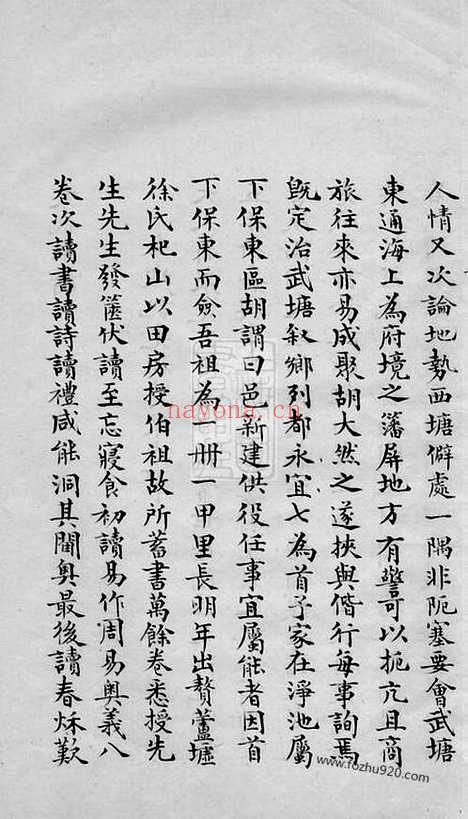 人情又次論地勢西塘僻處一隅非阨塞要會武塘
東通海上為府境之藩屏地方有警可以扼亢且商
旅往來亦易成聚胡大然之遂挾與偕行每事詢焉
既定治武塘敘鄉列都永宜七為首予家在淨池屬
下保東區胡謂曰邑新建供役任事宜屬能者因首
下保東而僉吾祖為一冊一甲里長明年出贅蘆墟
徐氏杞山以田房授伯祖故所蓄書萬餘卷悉授先
生先生發篋伏讀至忘寢食初讀易作周易奧義八
卷次讀書讀詩讀禮咸能洞其閫奧最後讀春秌歎
nayona.cn
www.fozhu920.com